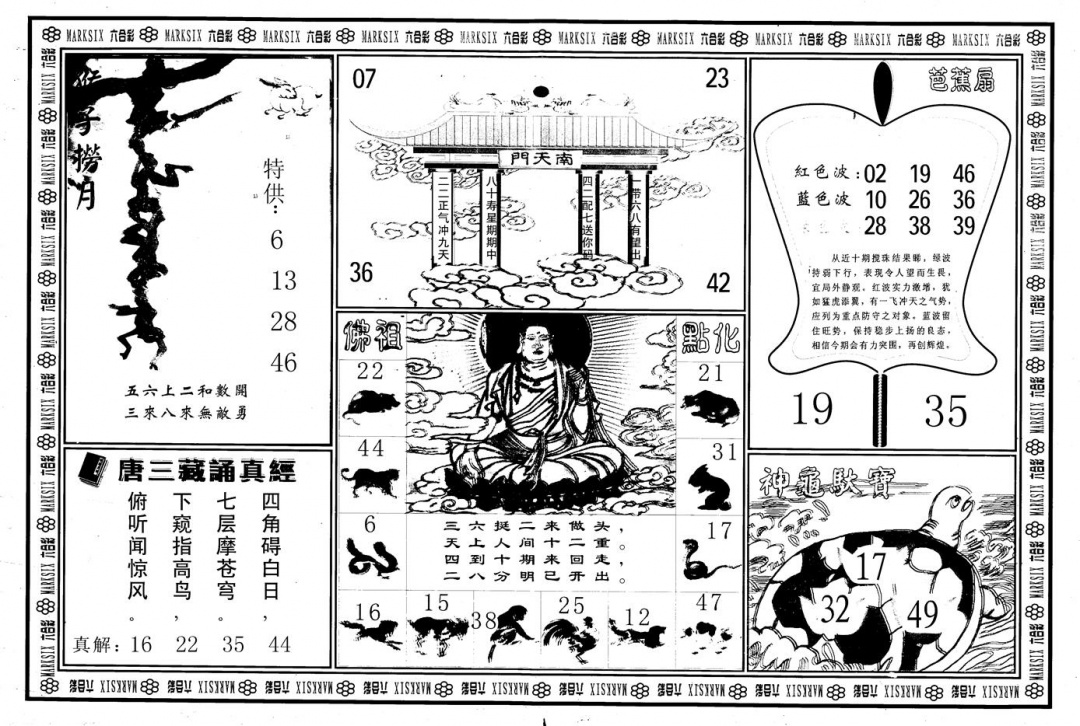 MARKSIX 六合彩 MARKSIX 六合彩 MARKSIX 六合彩 MARKSIX 六合彩 MARKSIX 六合彩 MARKSIX 六合彩 MARKSIX 六合彩 MARKSIX 六合彩 MARKSIX 六合彩 MARKSIX 六合彩
猴子撈月
特供:
6
13
28
46
五六上二和數開
三來八來無敵勇
唐三藏誦真經
四角碍白日,
七层摩苍穹。
下窥指高鸟,
俯听闻惊风。
真解: 16 22 35 44
07
23
南天門
一带六八有望出
四二配七送你码
八十寿星期期中
二二正气冲九天
36
42
佛祖
點化
22
21
44
31
6
17
三六挺二来做头,
天上人间十二重。
四到十期来回走,
二八分明已开出。
16
15
38
25
12
47
芭蕉扇
紅色波: 02 19 46
藍色波 10 26 36
28 38 39
从近十期搅珠结果睇, 绿波
持弱下行, 表现令人望而生畏,
宜局外静观。红波实力激增, 犹
如猛虎添翼, 有一飞冲天之气势,
应列为重点防守之对象。蓝波留
住旺势, 保持稳步上扬的良态,
相信今期会有力突围, 再创辉煌。
19
35
神龜馱寶
17
32
49